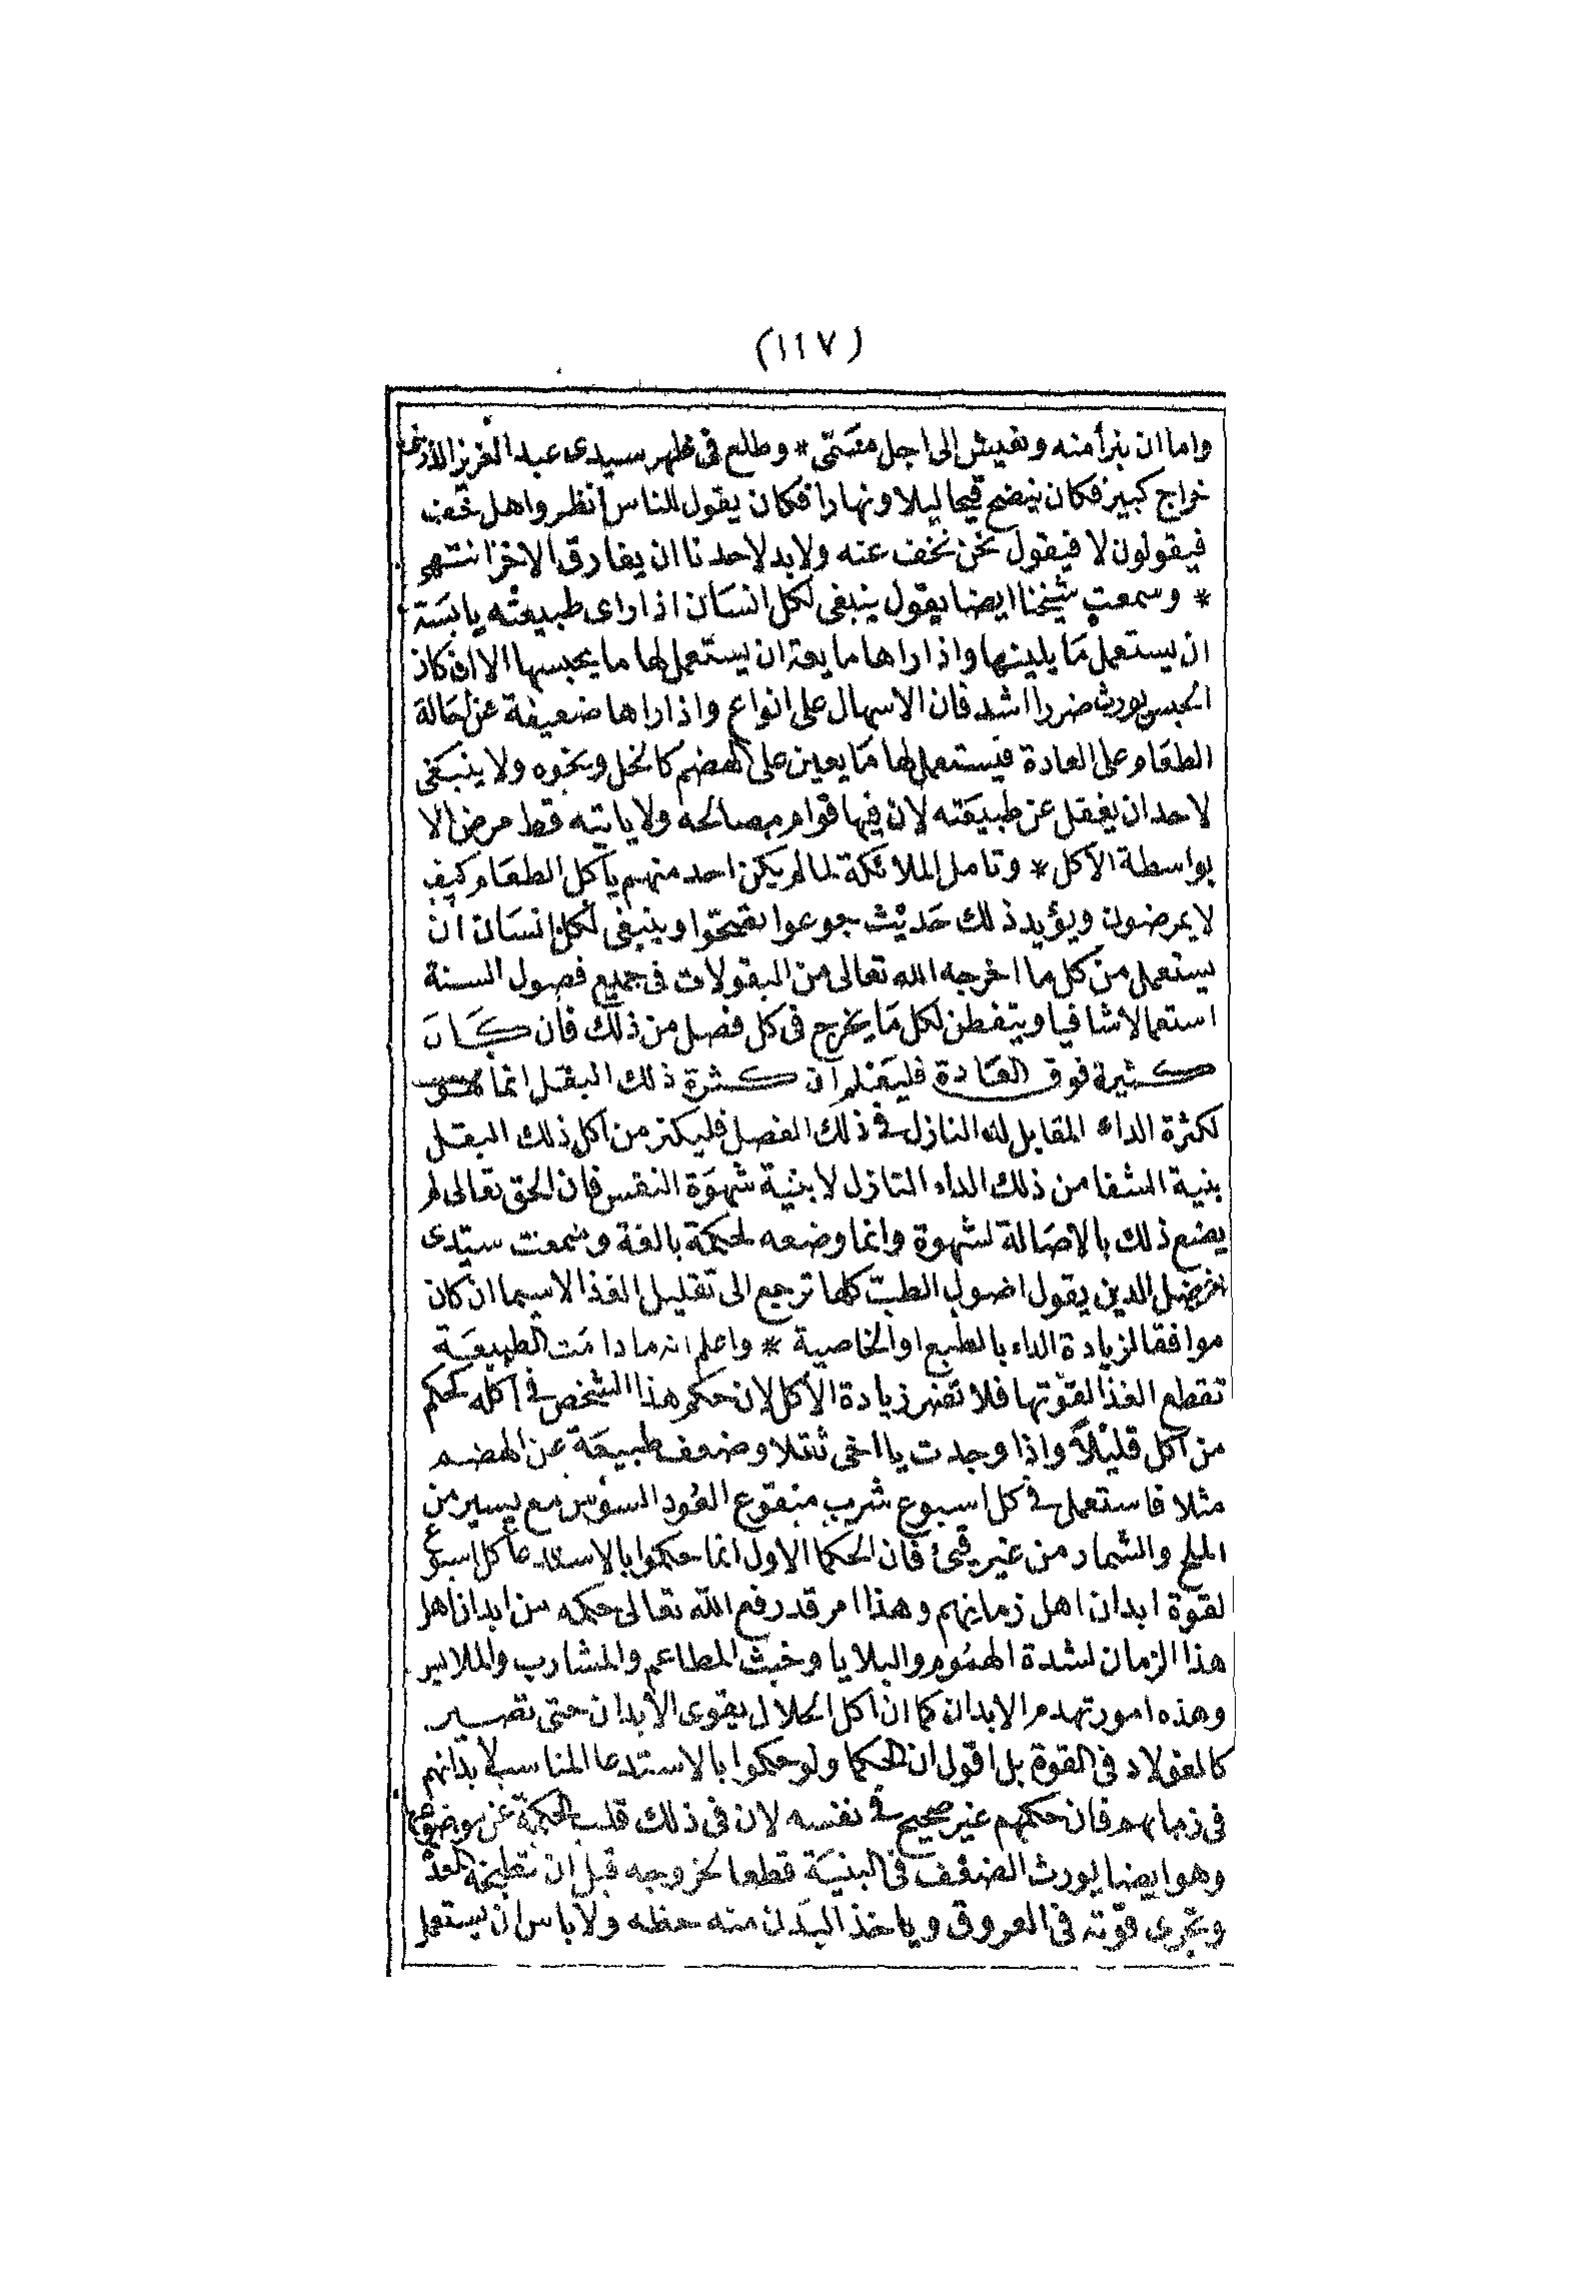 (١١٧)
واما ان نبرأ منه ونعيش الى اجل مسمى * وطلع فى ظهر سيدى عبد العزيز
خراج كبير فكان ينضح قيحا ليلا ونهارا فكان يقول للناس انظروا هل خف
فيقولون لا فيقول نحن نخف عنه ولا بد لاحدنا ان يفارق الاخر انتهى
* وسمعت شيخنا ايضا يقول ينبغى لكل انسان اذا راى طبيعته يابسة
ان يستعمل ما يلينها واذا راها مايعة ان يستعمل لها ما يحبسها الا ان كان
الحبس يورث ضررا اشد فان الاسهال على انواع واذا راها ضعيفة عن احالة
الطعام على العادة فيستعمل لها ما يعين على الهضم كالخل ونحوه ولا ينبغى
لاحد ان يغفل عن طبيعته لان فيها قوام مصالحه ولا ياتيه قط مرض الا
بواسطة الاكل * وتامل الملائكة لما لم يكن احد منهم ياكل الطعام كيف
لا يمرضون ويؤيد ذلك حديث جوعوا تصحوا وينبغى لكل انسان ان
يستعمل من كل ما اخرجه الله تعالى من البقولات فى جميع فصول السنة
استعمالا شافيا ويتفطن لكل ما يخرج فى كل فصل من ذلك فان كان
كثيرة فوق العادة فليعلم ان كثرة ذلك البقل انما هو
لكثرة الداء المقابل له النازل فى ذلك الفصل فليكثر من اكل ذلك البقل
بنية الشفا من ذلك الداء النازل لا بنية شهوة النفس فان الحق تعالى لم
يضع ذلك بالاصالة لشهوة وانما وضعه لحكمة بالغة وسمعت سيدى
افضل الدين يقول اصول الطب كلها ترجع الى تقليل الغذا لاسيما ان كان
موافقا لزيادة الداء بالطبع او الخاصية * واعلم انه ما دامت الطبيعة
تقطع الغذا لقوتها فلا تضر زيادة الاكل لان حكم هذا الشخص فى اكله كحكم
من اكل قليلا واذا وجدت يا اخى ثقلا وضعف طبيعة عن الهضم
مثلا فاستعمل فى كل اسبوع شرب منقوع العود السوس مع يسير من
الملح والشمار من غير قىء فان الحكما الاول انما حكموا بالاستدعا كل اسبوع
لقوة ابدان اهل زمانهم وهذا امر قد رفع الله تعالى حكمه من ابدان اهل
هذا الزمان لشدة الهموم والبلايا وخبث المطاعم والمشارب والملابس
وهذه امور تهدم الابدان كما ان اكل الحلال يقوى الابدان حتى تصير
كالفولاد فى القوة بل اقول ان الحكما ولو حكموا بالاستدعا المناسب لابدانهم
فى زمانهم فان حكمهم غير صحيح فى نفسه لان فى ذلك قلب الحكمة عن موضوعها
وهو ايضا يورث الضعف فى البنية قطعا لخروجه قبل ان تطبخه المعدة
وتجرى قوته فى العروق وياخذ البدن منه حظه ولا باس ان يستعمل